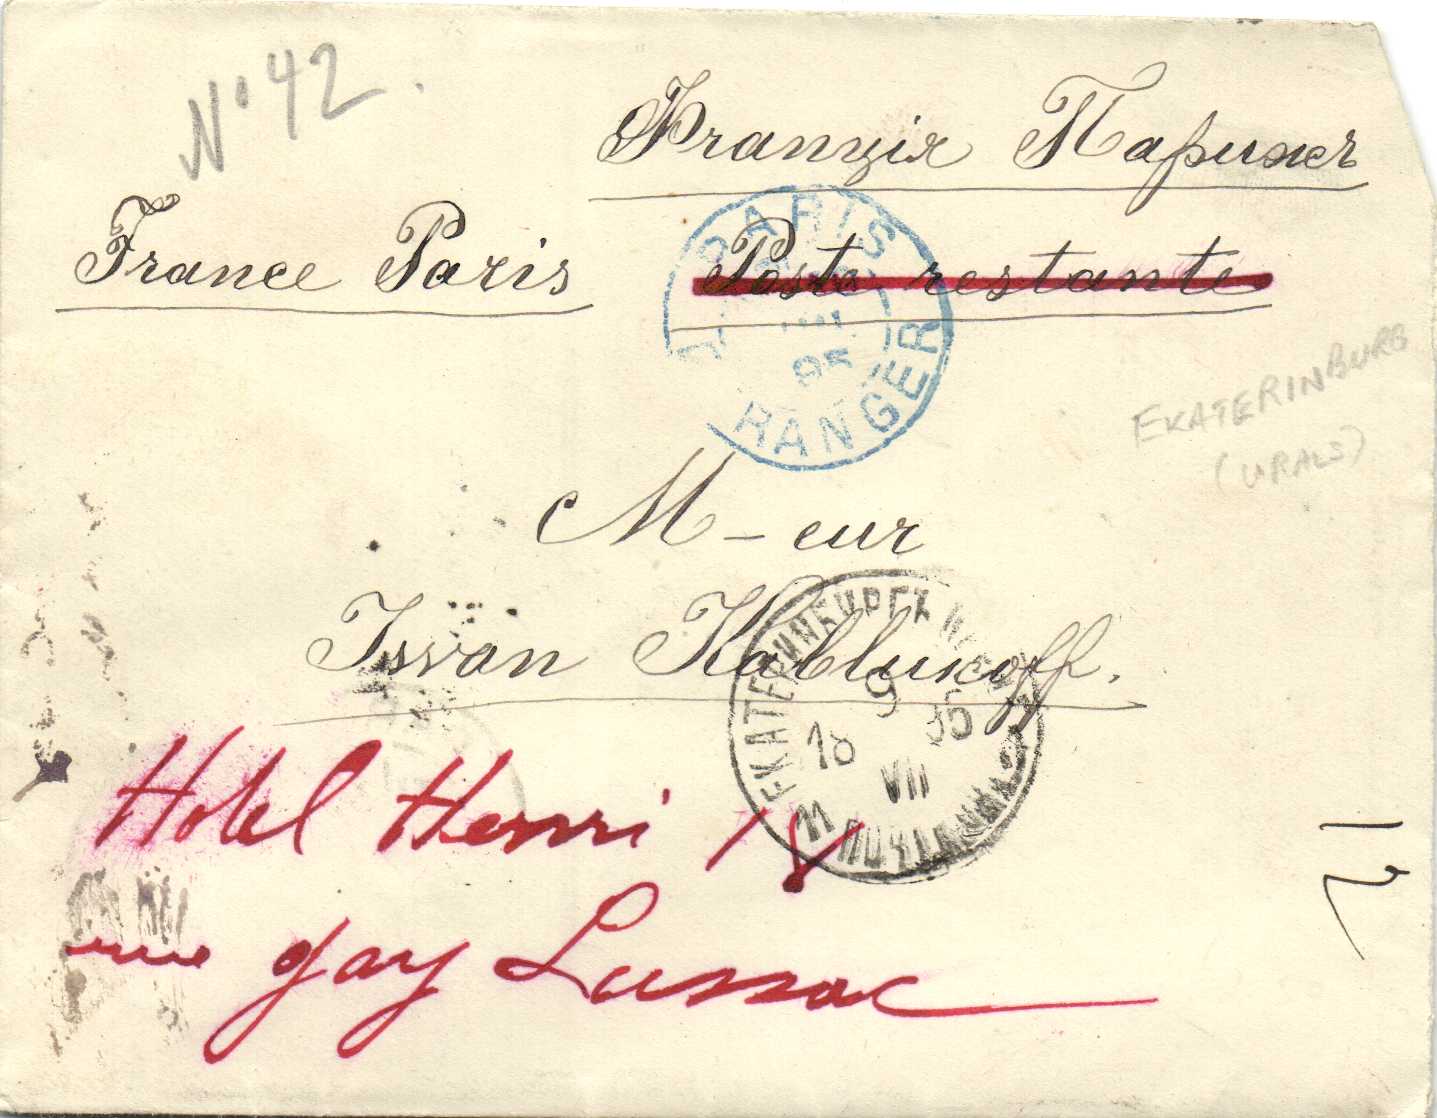 N° 42.
Франція Парижъ
France Paris Poste restante
PARIS
95
ETRANGER
EKATERINBURG
(URALS)
M-eur
Iwan Kablukoff.
ЕКАТЕРИНБУРГЪ
9
18 95
VII
Hotel Henri IV
rue Gay Lussac